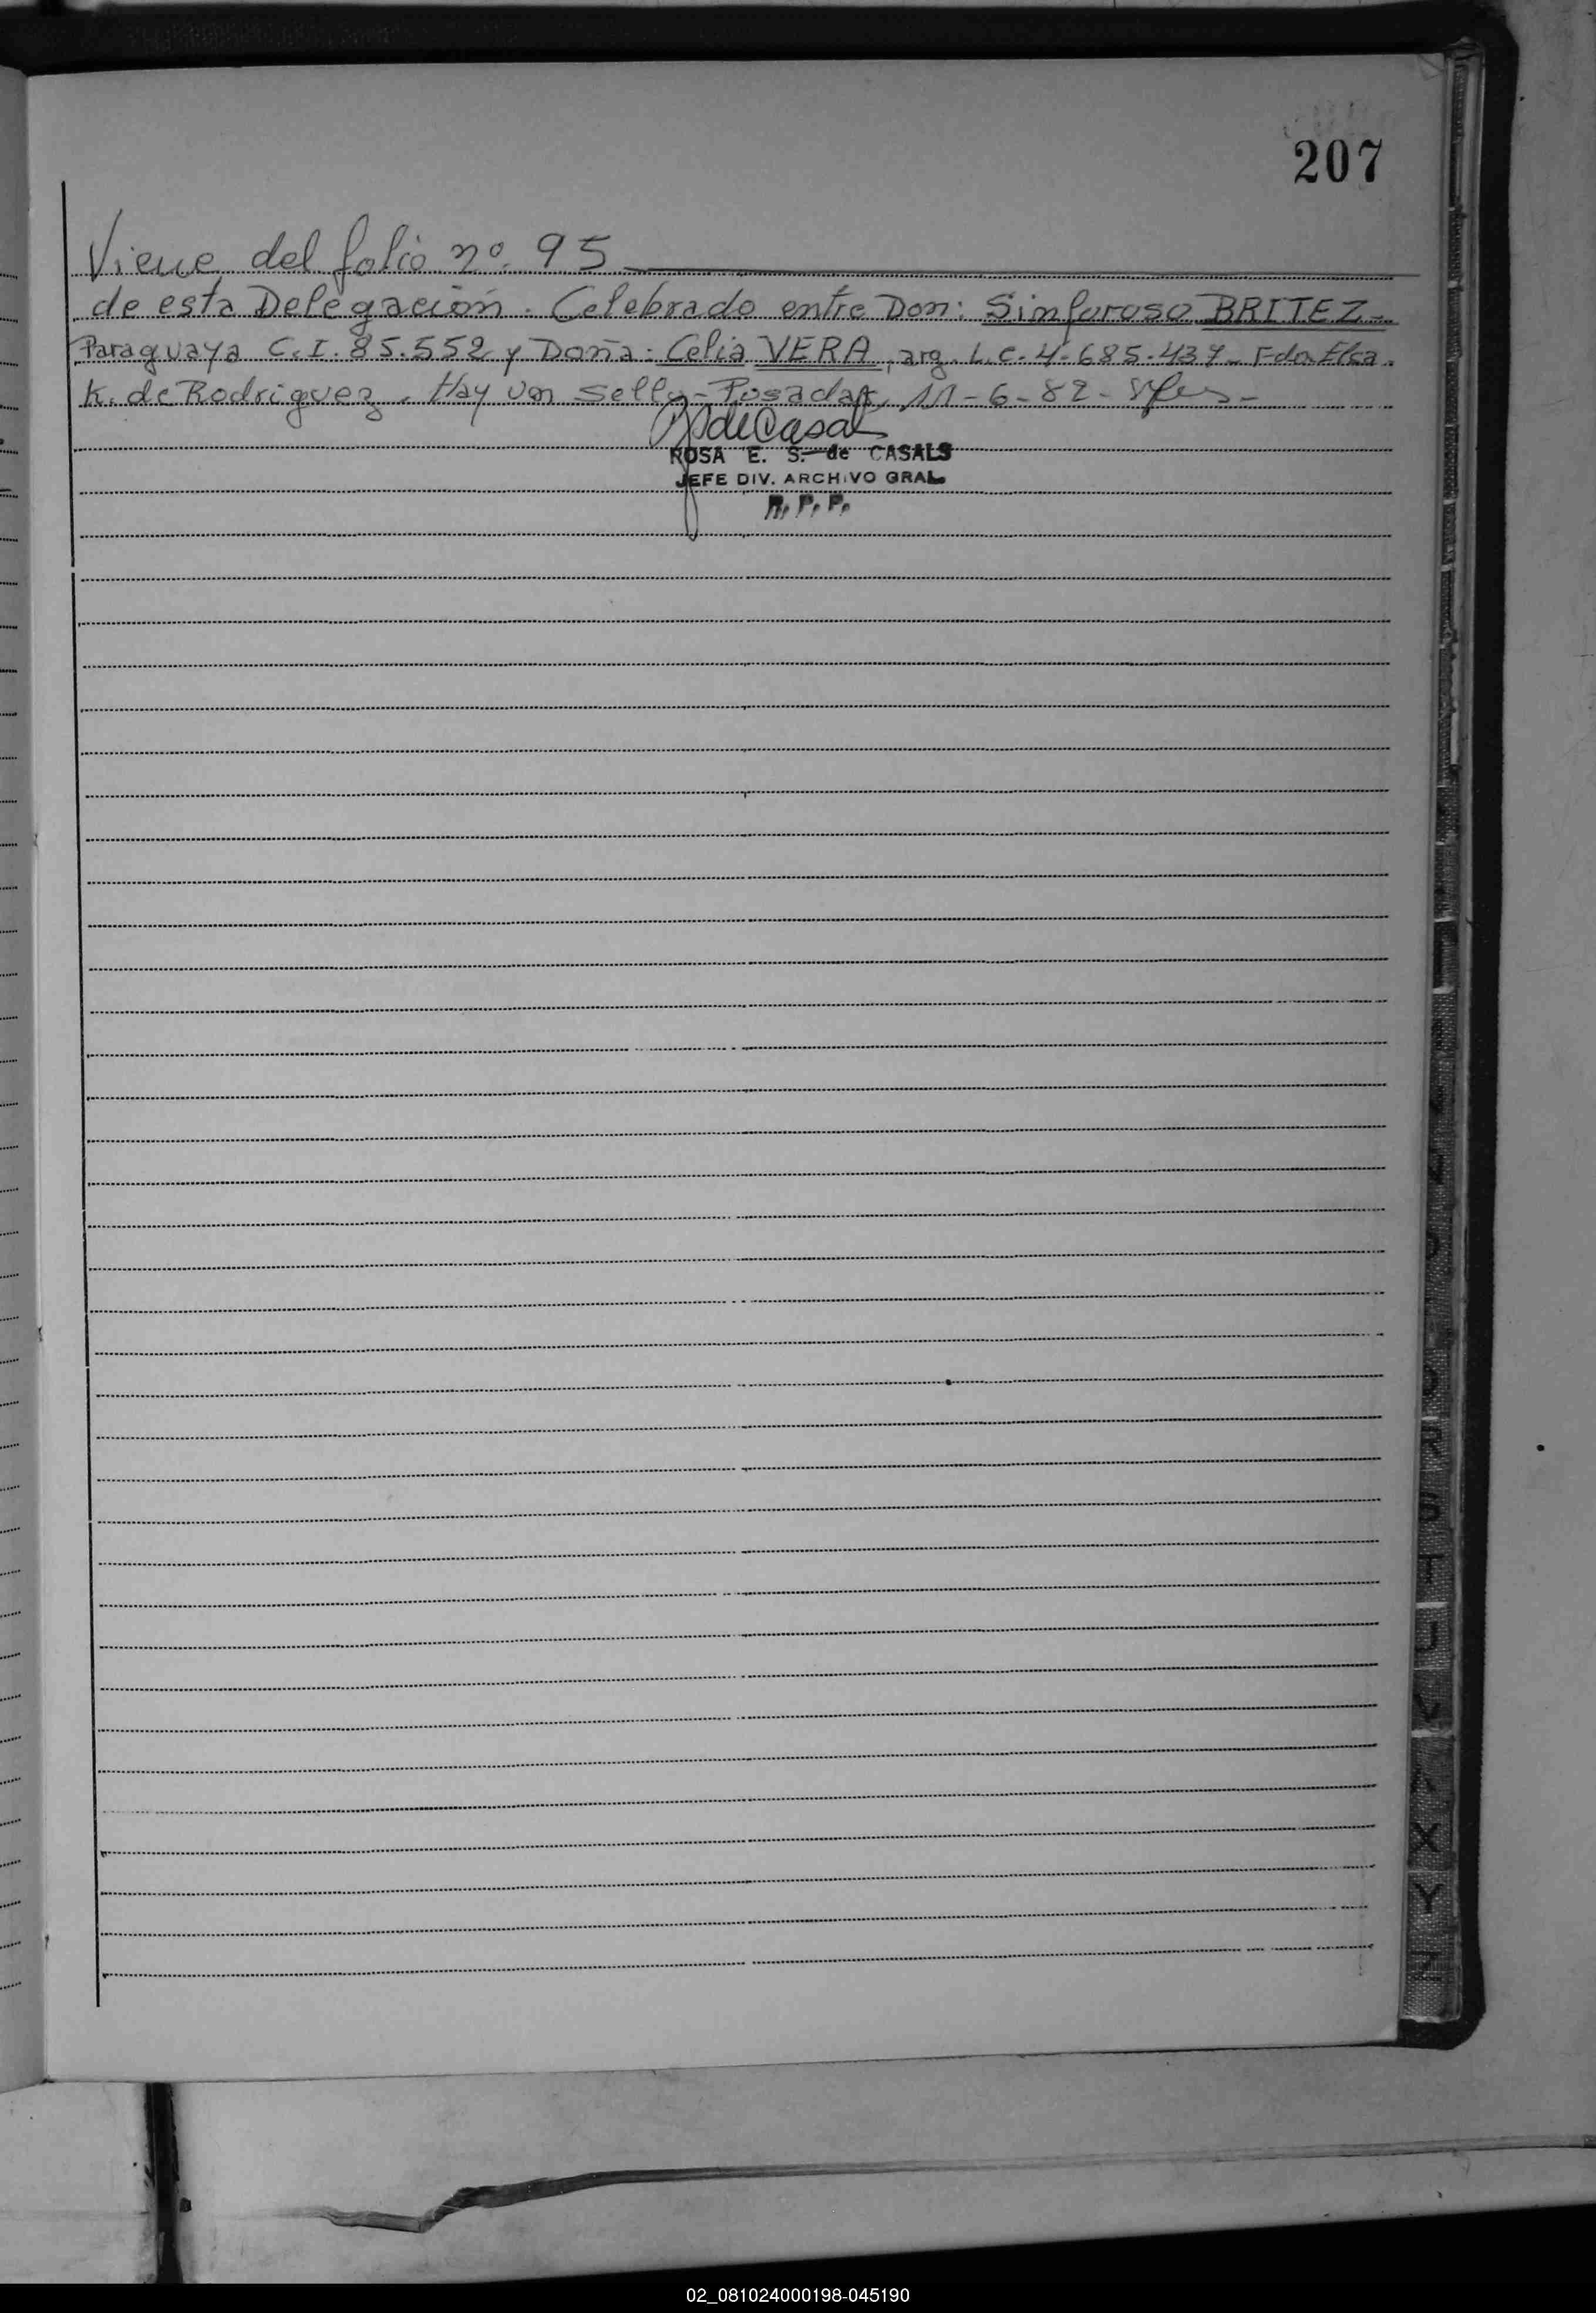 207
Viene del folio nº 95
de esta Delegación. Celebrado entre Don: Sinforoso BRITEZ-
Paraguaya C.I. 85.552 y Doña: Celia VERA, arg. L.C. 4.685.437- Fdo. Elsa
K. de Rodriguez. Hay un sello- Posadas, 11-6-82-
ROSA E. S. de CASALS
JEFE DIV. ARCHIVO GRAL
R. P. P.
S
T
U
X
Y
Z
02_081024000198-045190